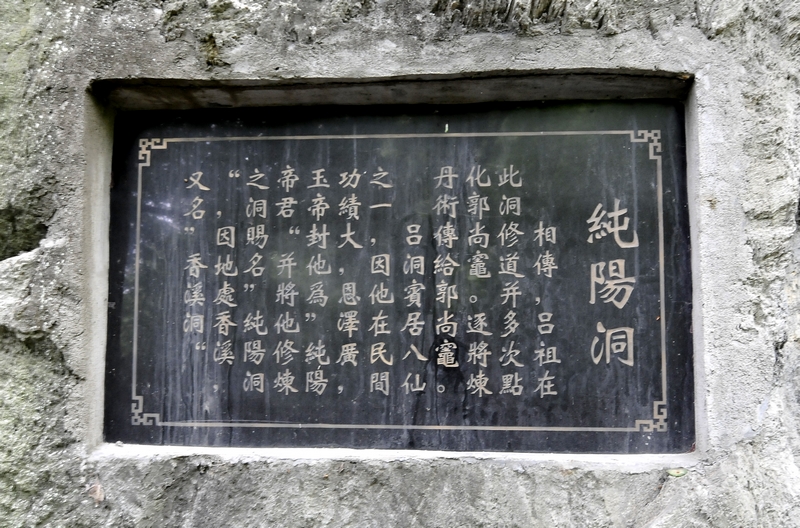 純陽洞
相傳，呂祖在
此洞修道并多次點
化郭尚竈。逐將煉
丹術傳給郭尚竈。
呂洞賓居八仙
之一，因他在民間
功績大，恩澤廣，
玉帝封他爲”純陽
帝君“并將他修煉
之洞賜名”純陽洞
“，因地處香溪，
又名”香溪洞“